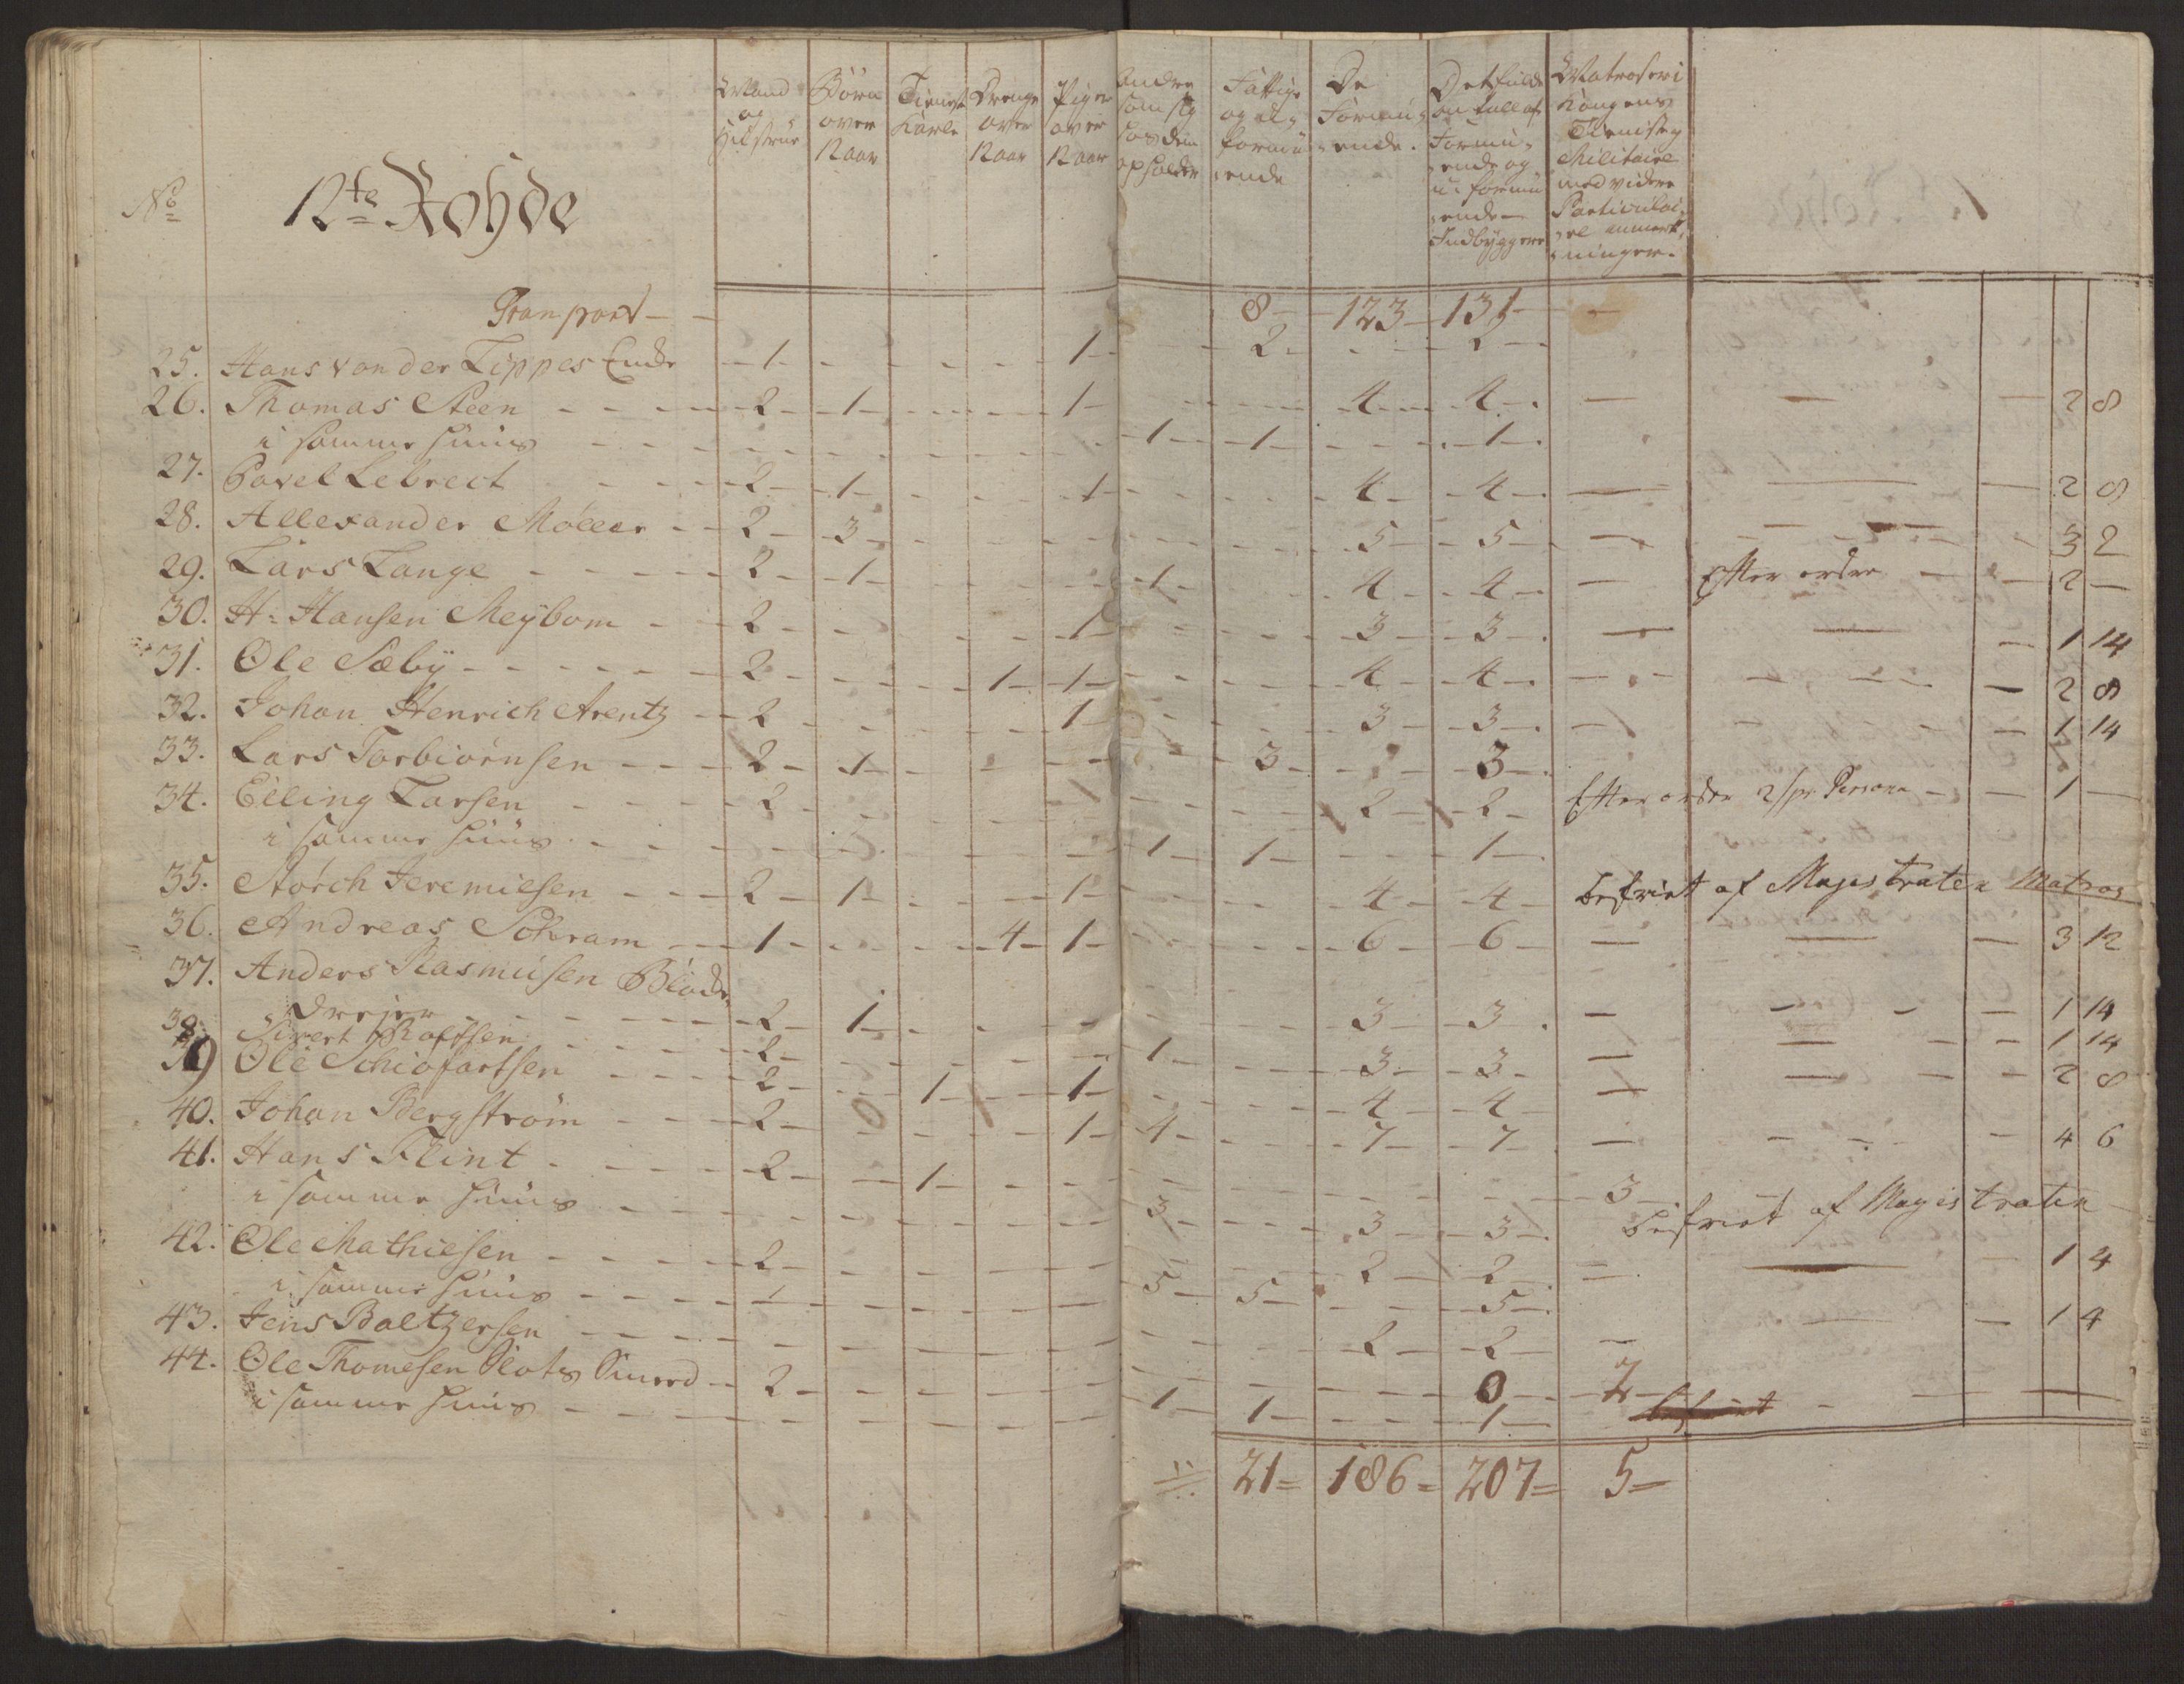 No
12te Rohde
Mand og Hustrue
Börn over 12 aar
Tieneste Karle
Drenge over 12 aar
Piger over 12 aar
Andre som sig hos dem opholder
Fattige og uformuende
De Formuende.
Det fulde antall af Formuende og uformuende Indbyggere
Matroser i Kongens Tieniste Militaire med videre Particulaire anmerkninger.
Transport — — 8 — 123 — 131 —
25. Hans von der Lippes Encke 1 1 2 2
26. Thomas Steen 2 1 1 4 4 2 8
i samme Huus 1 1 1
27. Pavel Lebrect 2 1 1 4 4 2 8
28. Allexander Möller 2 3 5 5 3 2
29. Lars Lange 2 1 1 4 4 Efter ordre 2 —
30. H: Hansen Meÿbom 2 1 3 3 1 14
31. Ole Sæbÿ 2 1 1 4 4 2 8
32. Johan Henrich Arentz 2 1 3 3 1 14
33. Lars Torbiörnsen 2 1 3 3
34. Elling Larsen 2 2 2 Efter ordre 2 s pr Persone 1 —
i samme Huus 1 1 1
35. Störch Jeremiesen 2 1 1 4 4 befriet af Magistraten Matros
36. Andreas Schram 1 4 1 6 6 3 12
37. Anders Rasmusen Blode
Dreier 2 1 3 3 1 14
38. Sivert Rolfsen 2 1 3 3 1 14
39 Ole Schiofartsen 2 1 1 4 4 2 8
40. Johan Bergström 2 1 4 7 7 4 6
41. Hans Flint 2 1 3
i samme Huus 3 3 3 befriet af Magistraten
42. Ole Mathiesen 2 2 2 1 4
i samme Huus 5 5 5
43. Jens Baltzersen 2 2 1 4
44. Ole Thomesen Slots 2 0 2
i samme Huus 1 1 1 befriet
21 = 186 = 207 = 5 =